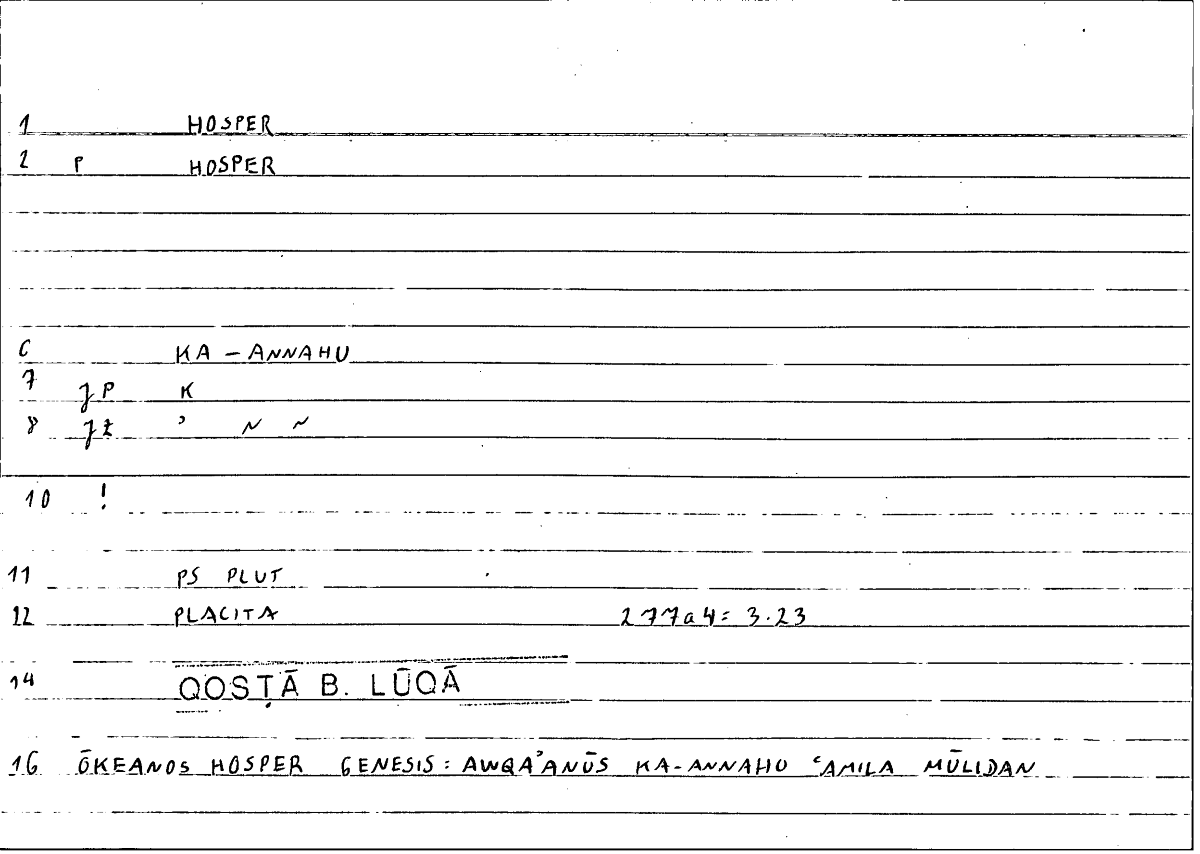 1 HOSPER
2 P HOSPER
6 KA-ANNAHU
7 JP K
8 JŻ ʾ N N
10 !
11 PS PLUT
12 PLACITA 277a4= 3.23
14 QOSṬĀ B. LŪQĀ
16 ŌKEANOS HOSPER GENESIS: AWQAʾANŪS KA-ANNAHU ʿAMILA MŪLIDAN